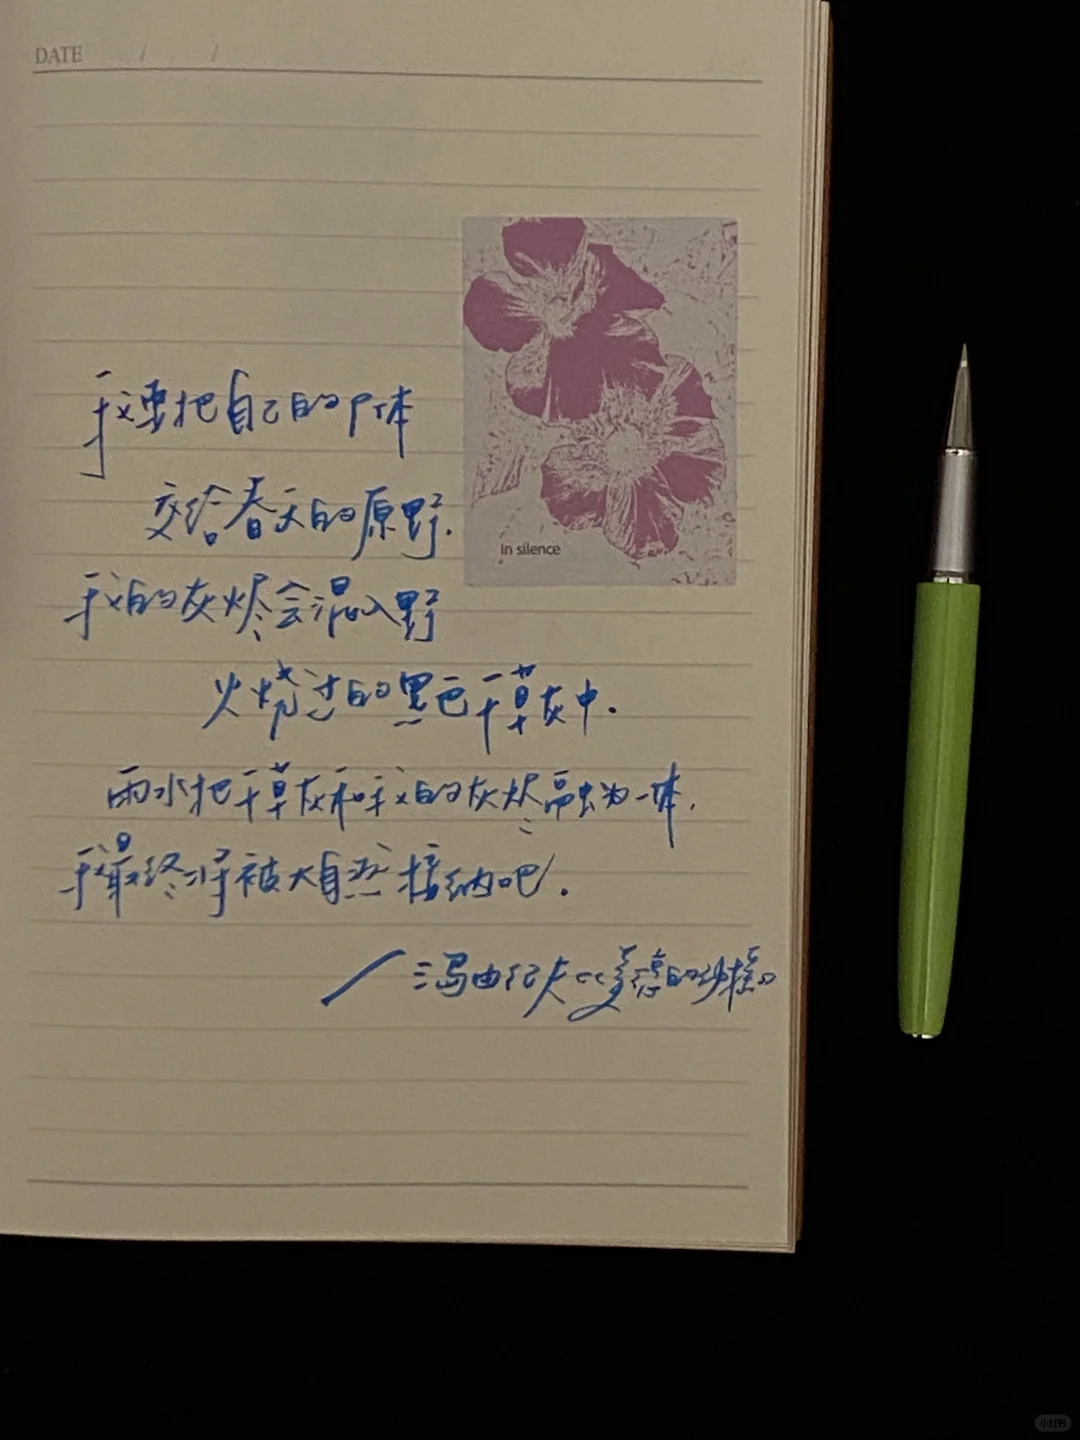 DATE / /
我要把自己的尸体
交给春天的原野.
我的灰烬会混入野
火烧过的黑色干草灰中.
雨水把干草灰和我的灰烬融为一体,
我最终将被大自然接纳吧.
/三岛由纪夫《美德的动摇》
in silence
小红书